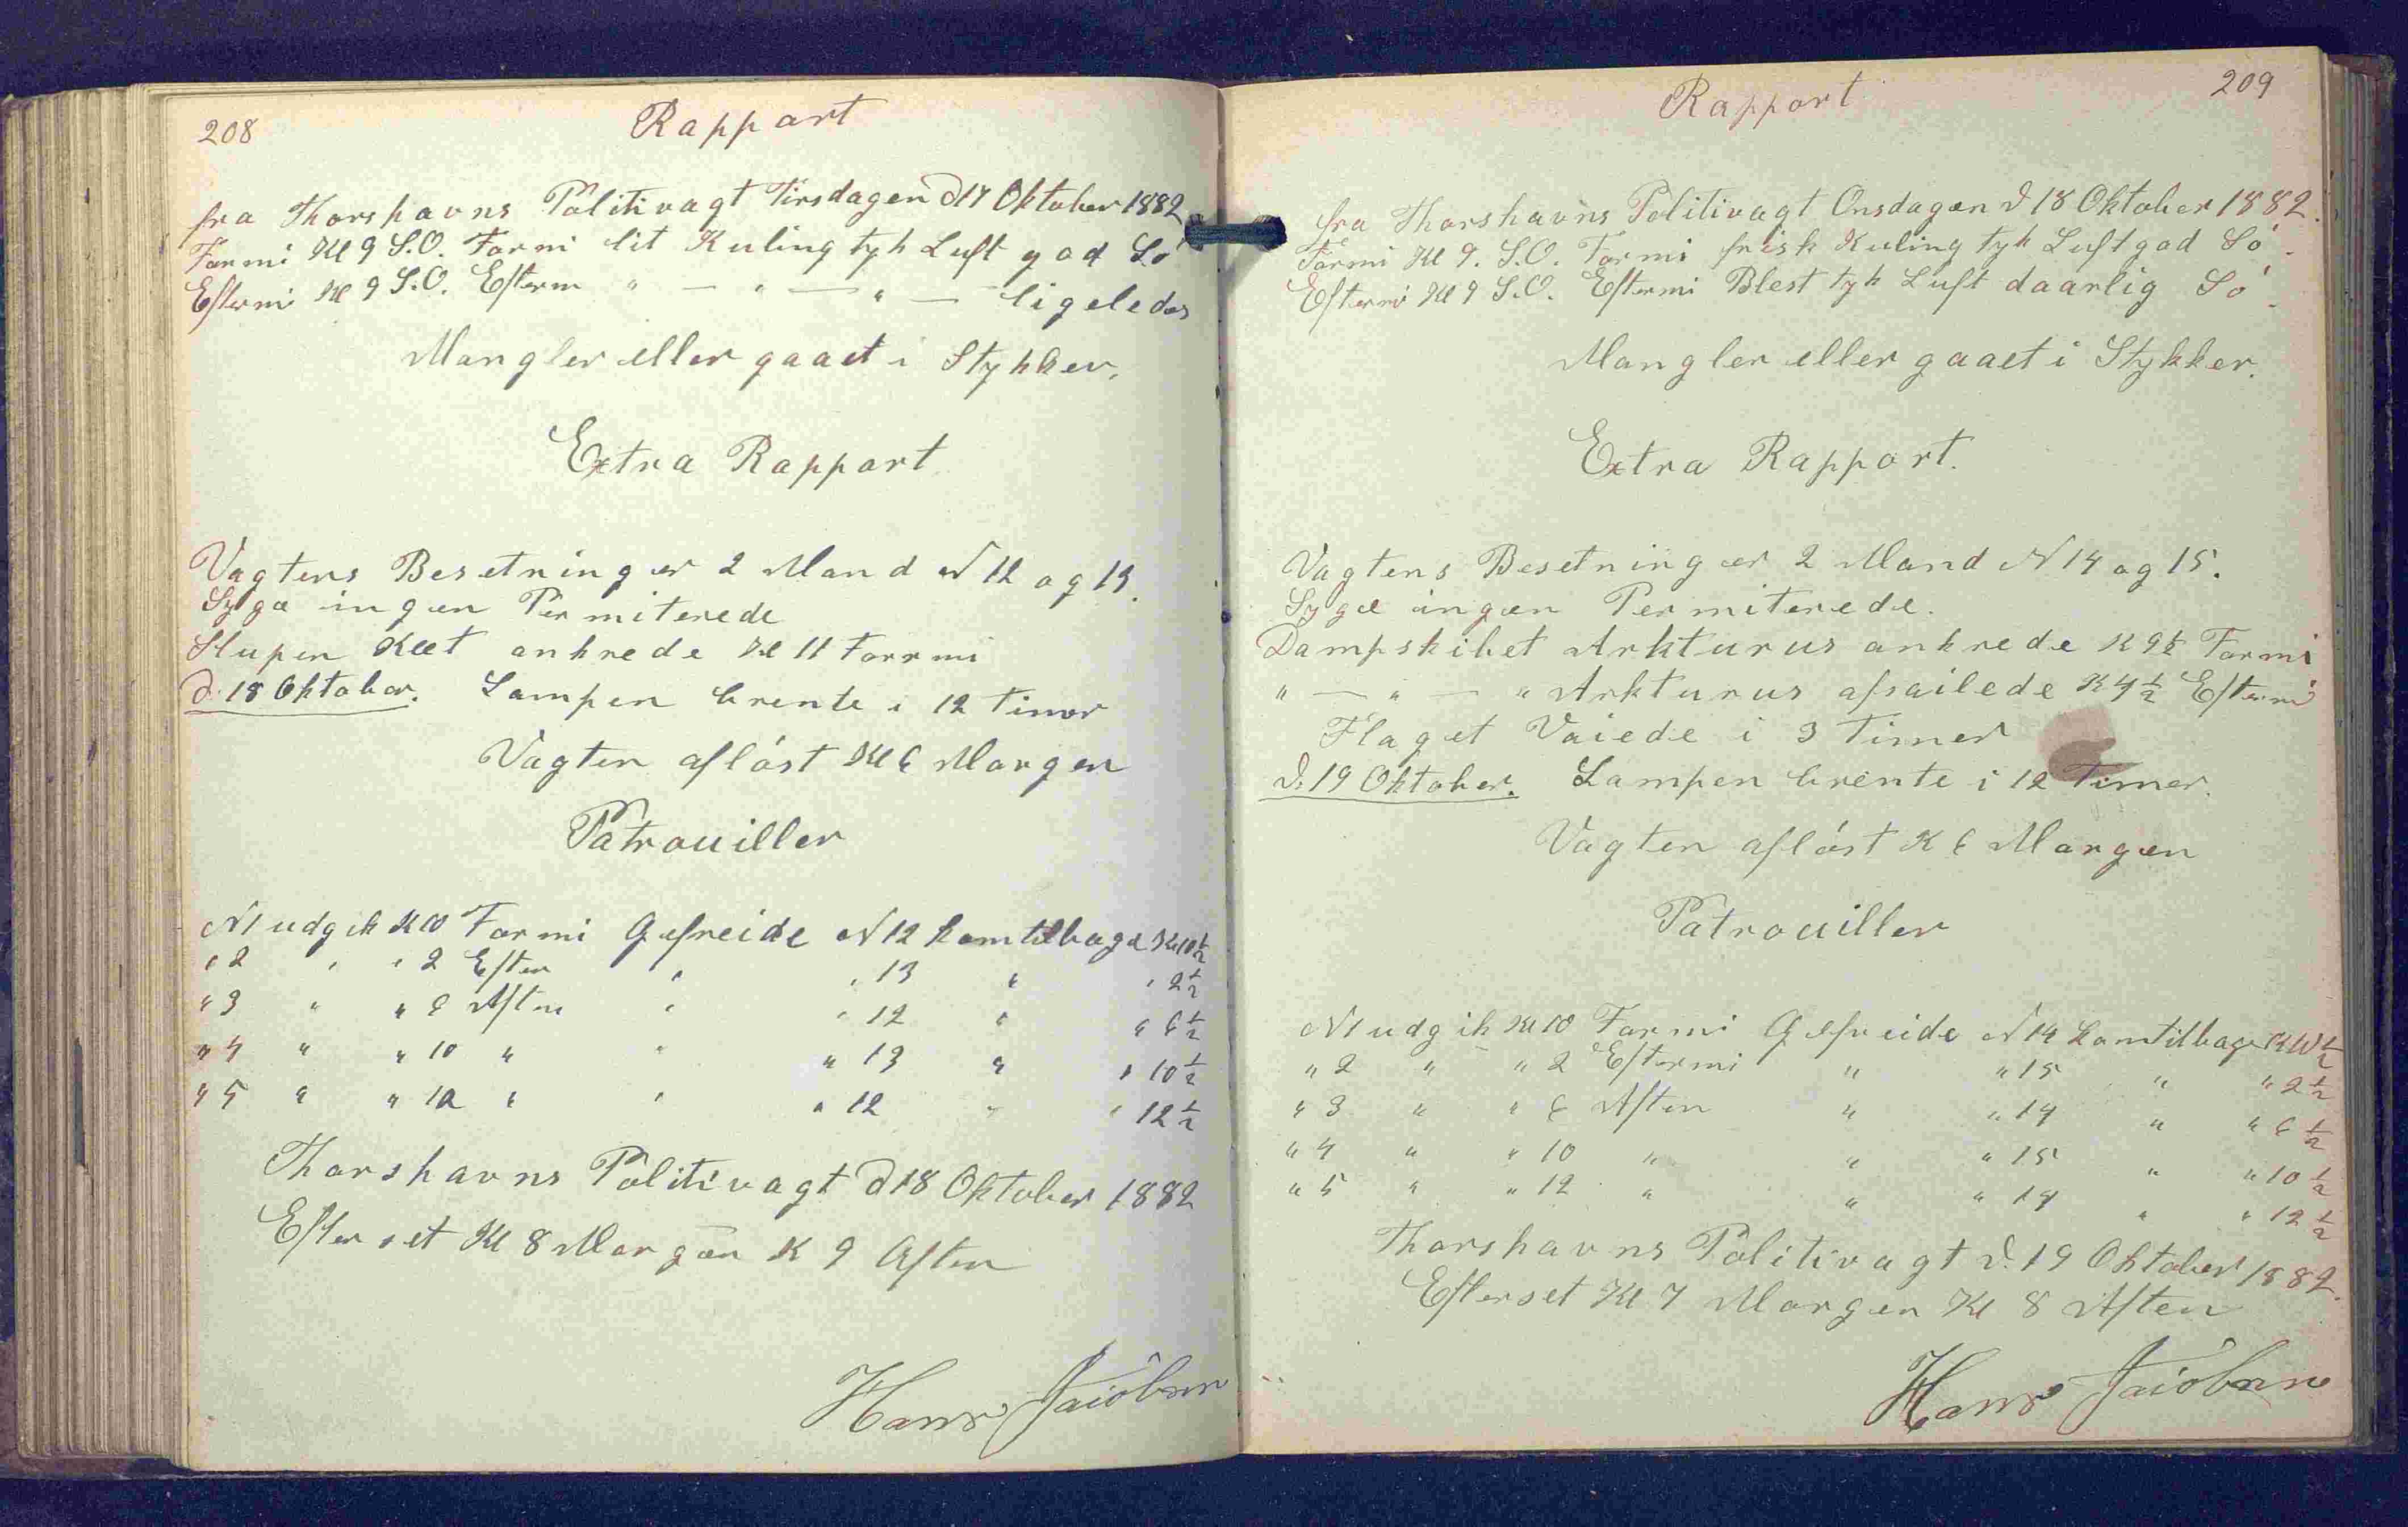 208
Rapport
fra Thorshavns Politivagt Tirsdagen d 17 Oktober 1882
Formi Kl 9 S.O. Formi lit Kuling tyk Luft god Sö
Eftermi Kl 9 S.O. Efterm " — " — " — ligeledes
Mangler eller gaaet i Stykker.
Extra Rapport
Vagtens Besetning er 2 Mand N 12 og 13.
Syge ingen Permiterede
SlupenKet ankrede Kl 11 Formi
d. 18 Oktober. Lampen brente i 12 Timer
Vagten aflöst Kl 6 Morgen
Patrouiller
N 1 udgik Kl 10 Formi Gefreide N 12 kom tilbage Kl 10 1/2
" 2 " " 2 Efter " " 13 " " 2 1/2
" 3 " " 6 Aften " " 12 " " 6 1/2
" 4 " " 10 " " " 13 " " 10 1/2
" 5 " " 12 " " " 12 " " 12 1/2
Thorshavns Politivagt d 18 Oktober 1882
Efterset Kl 8 Morgen K 9 Aften
Hans Jacobsen
209
Rapport
fra Thorshavns Politivagt Onsdagen d 18 Oktober 1882.
Formi Kl 9. S.O. Formi frisk Kuling tyk Luft god Sö.
Eftermi Kl 9 S.O. Eftermi Blest tyk Luft daarlig Sö.
Mangler eller gaaet i Stykker.
Extra Rapport.
Vagtens Besetning er 2 Mand N 14 og 15.
Syge ingen Permiterede.
Dampskibet Arkturus ankrede K 9 1/2 Formi
" — " — " Arkturus afsailede K 4 1/2 Eftermi
Flaget Vaiede i 3 Timer
d. 19 Oktober. Lampen brente i 12 Timer.
Vagten aflöst K 6 Morgen
Patrouiller
N 1 udgik Kl 10 Formi Gefreide N 14 kom tilbage K 10 1/2
" 2 " " 2 Eftermi " " 15 " " 2 1/2
" 3 " " 6 Aften " " 14 " " 6 1/2
" 4 " " 10 " " " 15 " " 10 1/2
" 5 " " 12 " " " 14 " " 12 1/2
Thorshavns Politivagt d. 19 Oktober 1882.
Efterset Kl 7 Morgen Kl 8 Aften
Hans Jacobsen